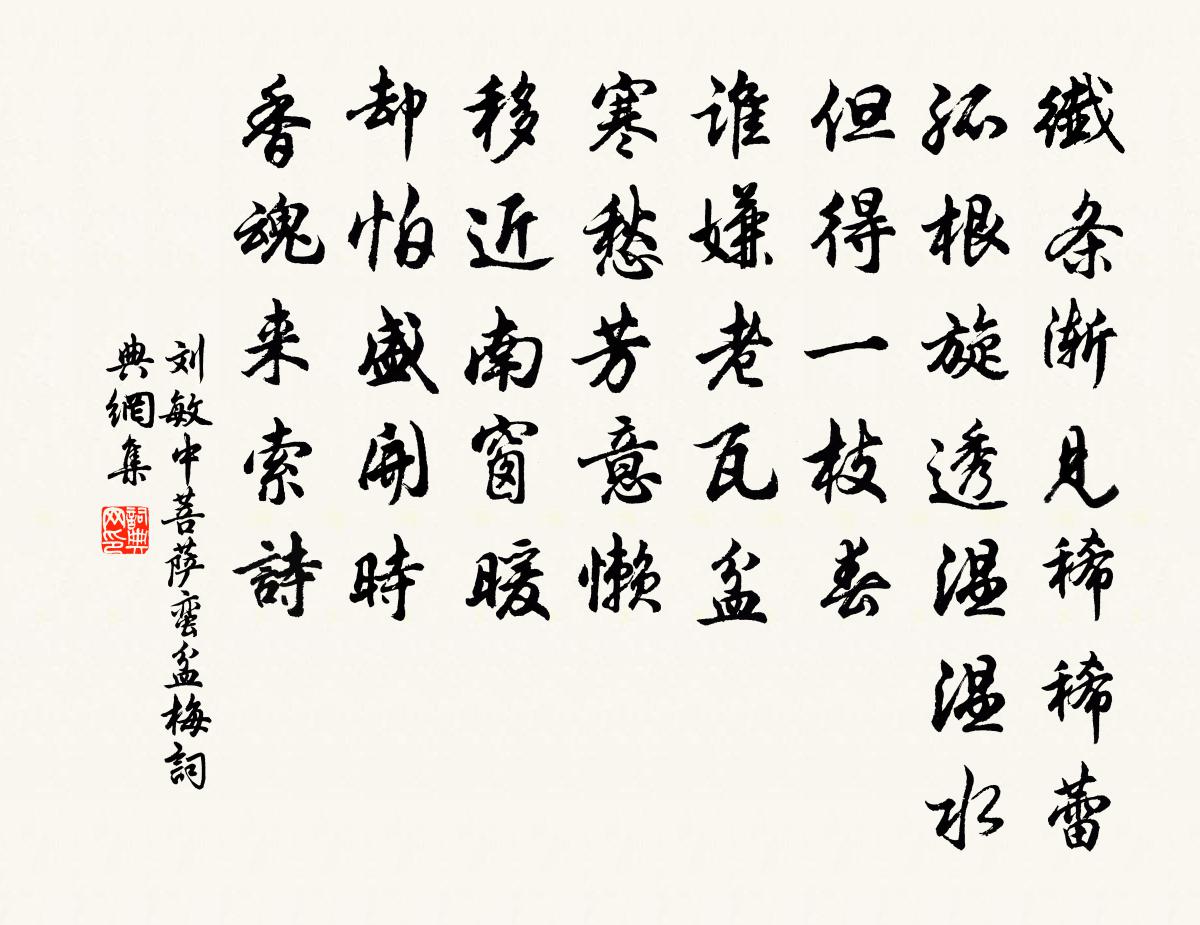 纖条渐見稀稀蕾
孤根旋透温温水
但得一枝春
谁嫌老瓦盆
寒愁芳意懒
移近南窗暖
却怕盛開時
香魂来索詩
刘敏中菩萨蛮盆梅詞
典網集
詞典网印